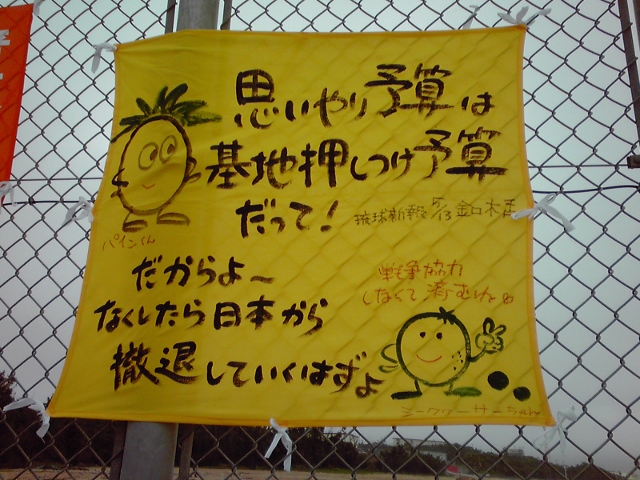 思いやり予算は
基地押しつけ予算
だって!
琉球新報 5/13 金口木舌
パインくん
だからよ〜
なくしたら日本から
撤退していくはずよ
戦争協力
しなくて済むけぇ
シークヮーサーちゃん